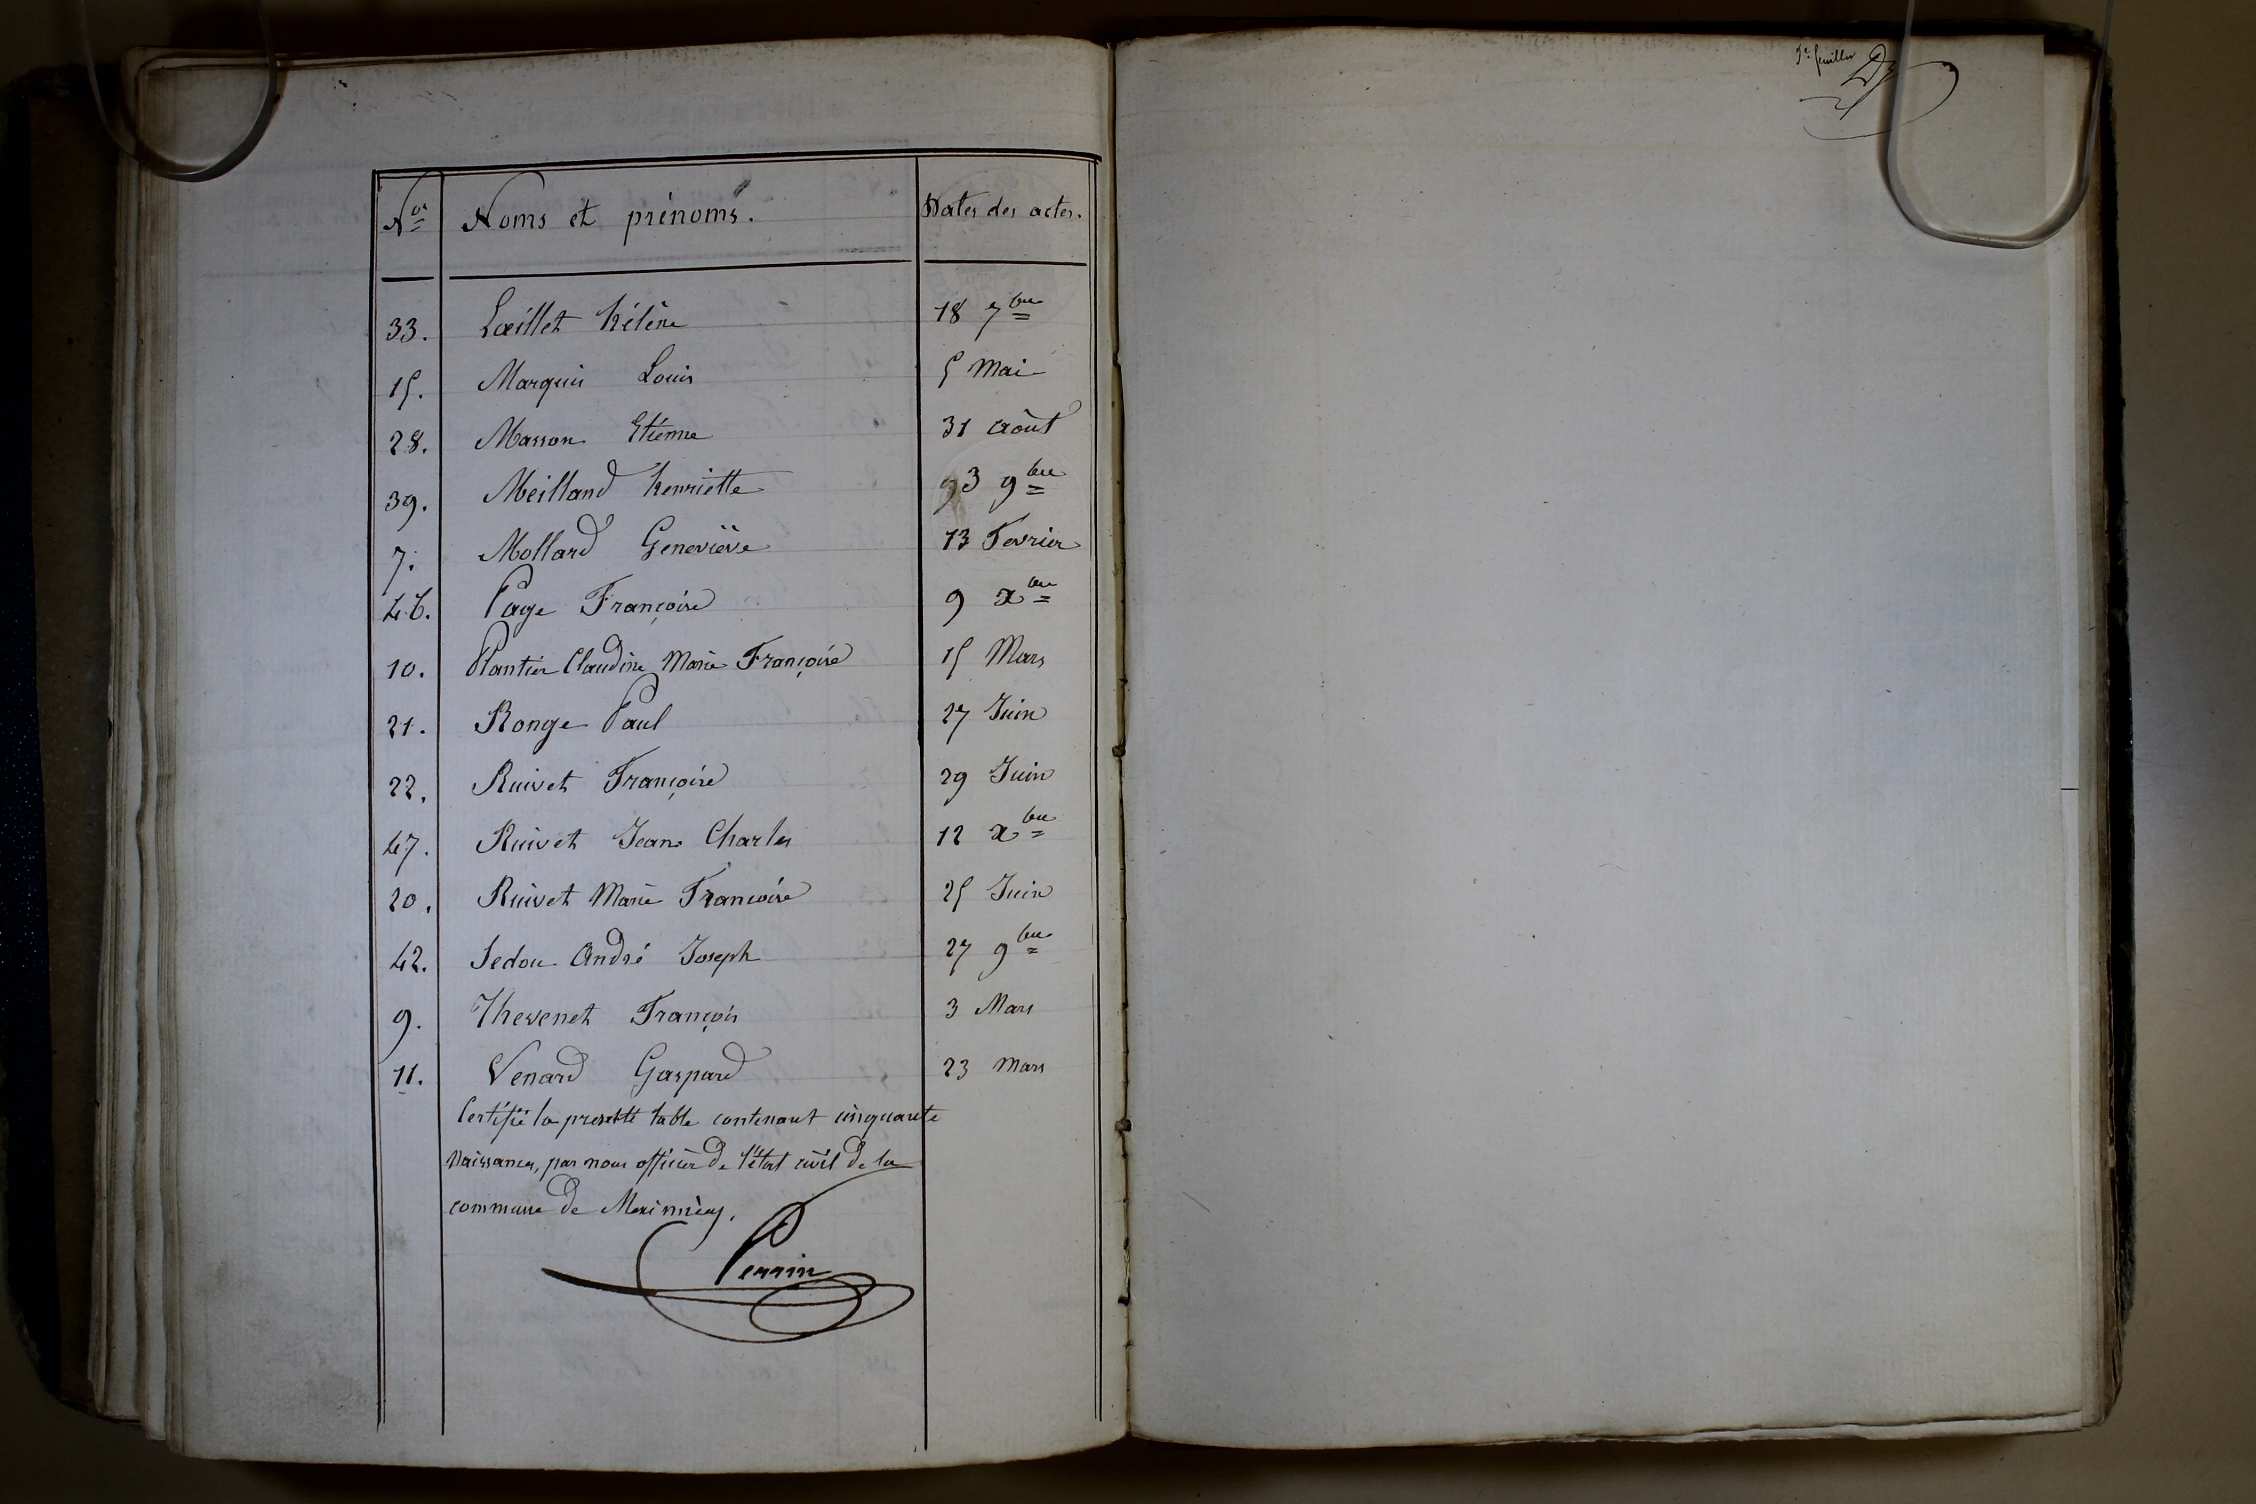 Nos Noms et prénoms. Dates des actes.
33. Lœillet hélène 18 7bre
15. Marquis Louis 5 Mai
28. Masson Etienne 31 Août
39. Meilland henriette 3 9bre
7. Mollard Geneviève 13 Fevrier
46. Page Françoise 9 xbre
10. Plantier Claudine Marie Françoise 15 Mars
21. Ronge Paul 27 Juin
22. Ruivet Françoise 29 Juin
47. Ruivet Jean Charles 12 xbre
20. Ruivet Marie Françoise 25 Juin
42. Sedou André Joseph 27 9bre
9. Thevenet François 3 Mars
11. Venard Gaspard 23 Mars
Certifié la presente table contenant cinquante
naissances, par nous officier de l'état civil de la
commune de
Perrin
feuillet